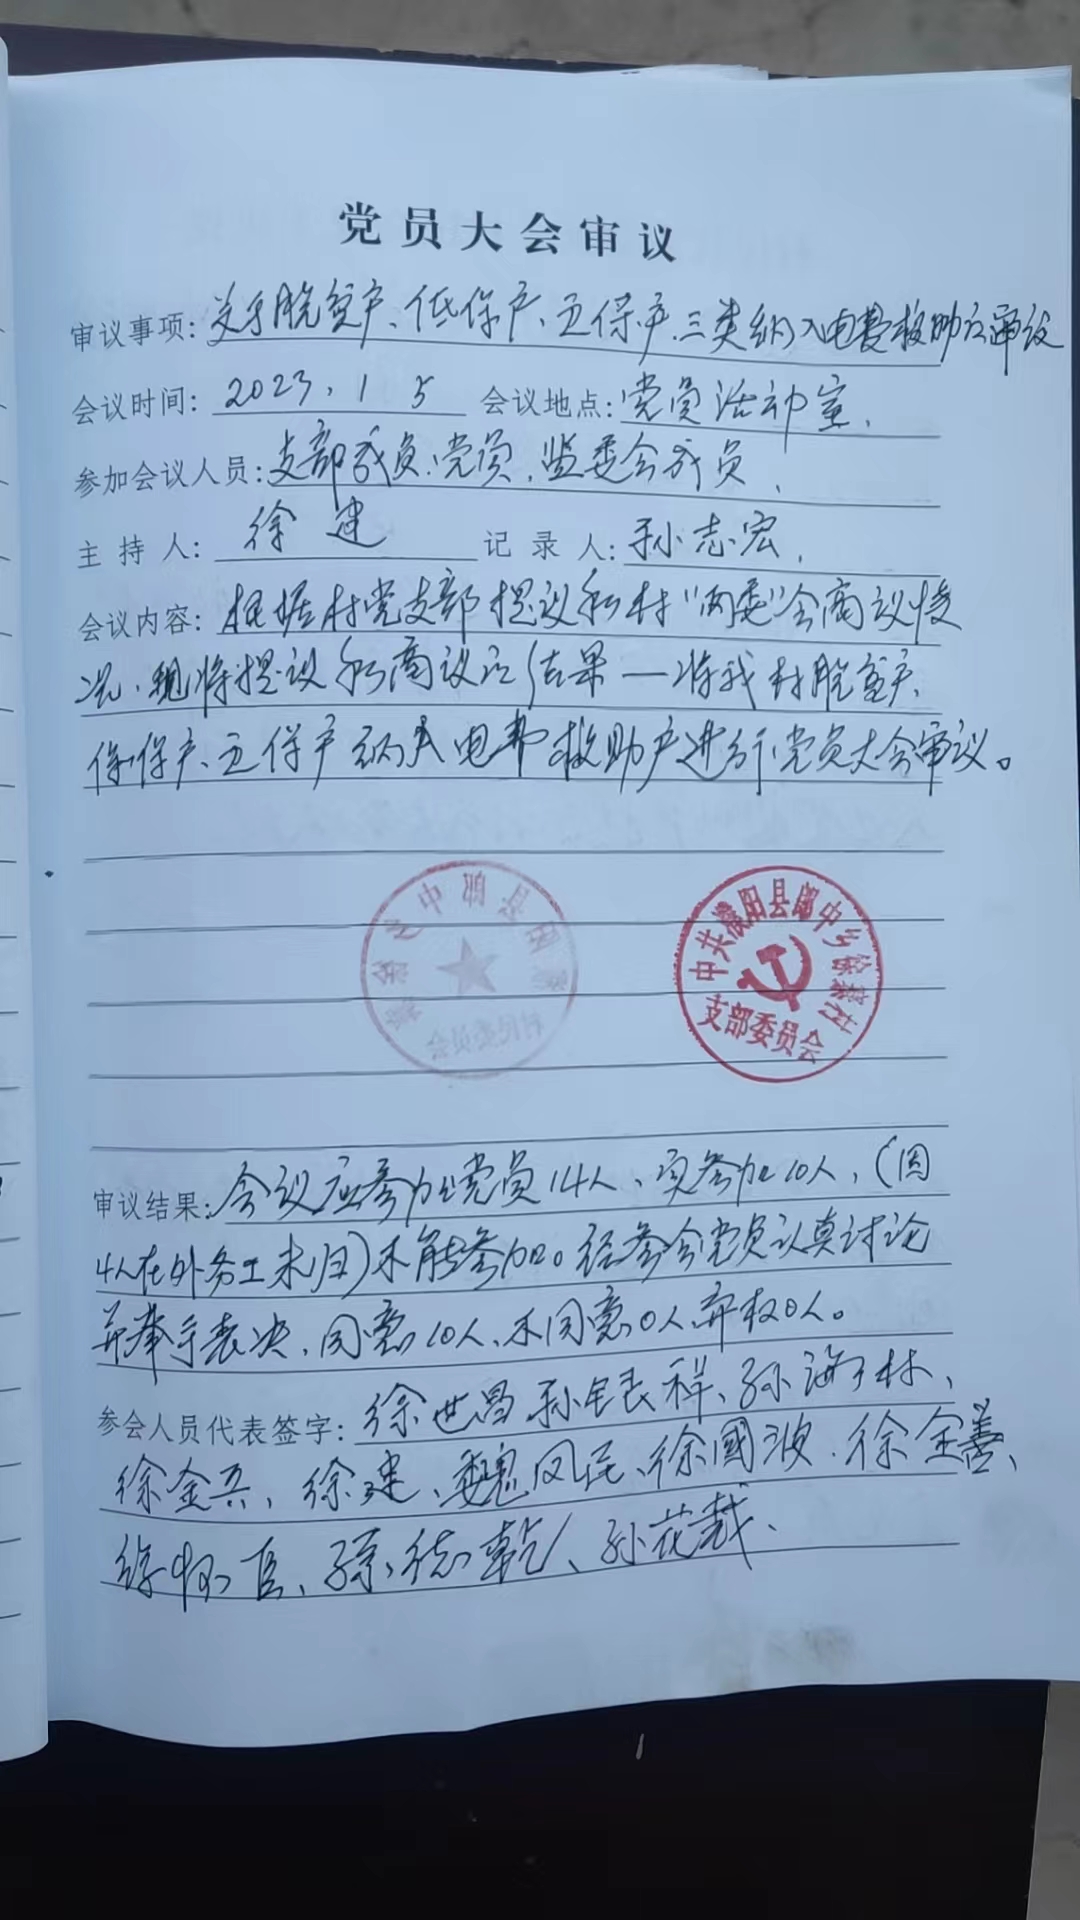 党员大会审议
审议事项: 关于脱贫户、低保户、五保户三类纳入电费救助户审议
会议时间: 2023.1 5 会议地点: 党员活动室.
参加会议人员: 支部成员、党员、监委会成员.
主持人: 徐建 记录人: 孙志宏.
会议内容: 根据村党支部提议和村“两委”会商议情
况、现将提议和商议的结果一将我村脱贫户、
保保户、五保户纳入电费救助户进行党员大会审议。
中共濮阳县郎中乡徐寨村
支部委员会
村民委员会
审议结果: 会议应参加党员14人、实参加10人,(因
4人在外务工未归)未能参加。经参会党员认真讨论
并举手表决、同意10人、不同意0人、弃权0人。
参会人员代表签字: 徐世昌 孙 祥、孙海林、
徐金兵、徐建、魏凤民、徐國波、徐金善、
徐怀 、孫德乾、孙花